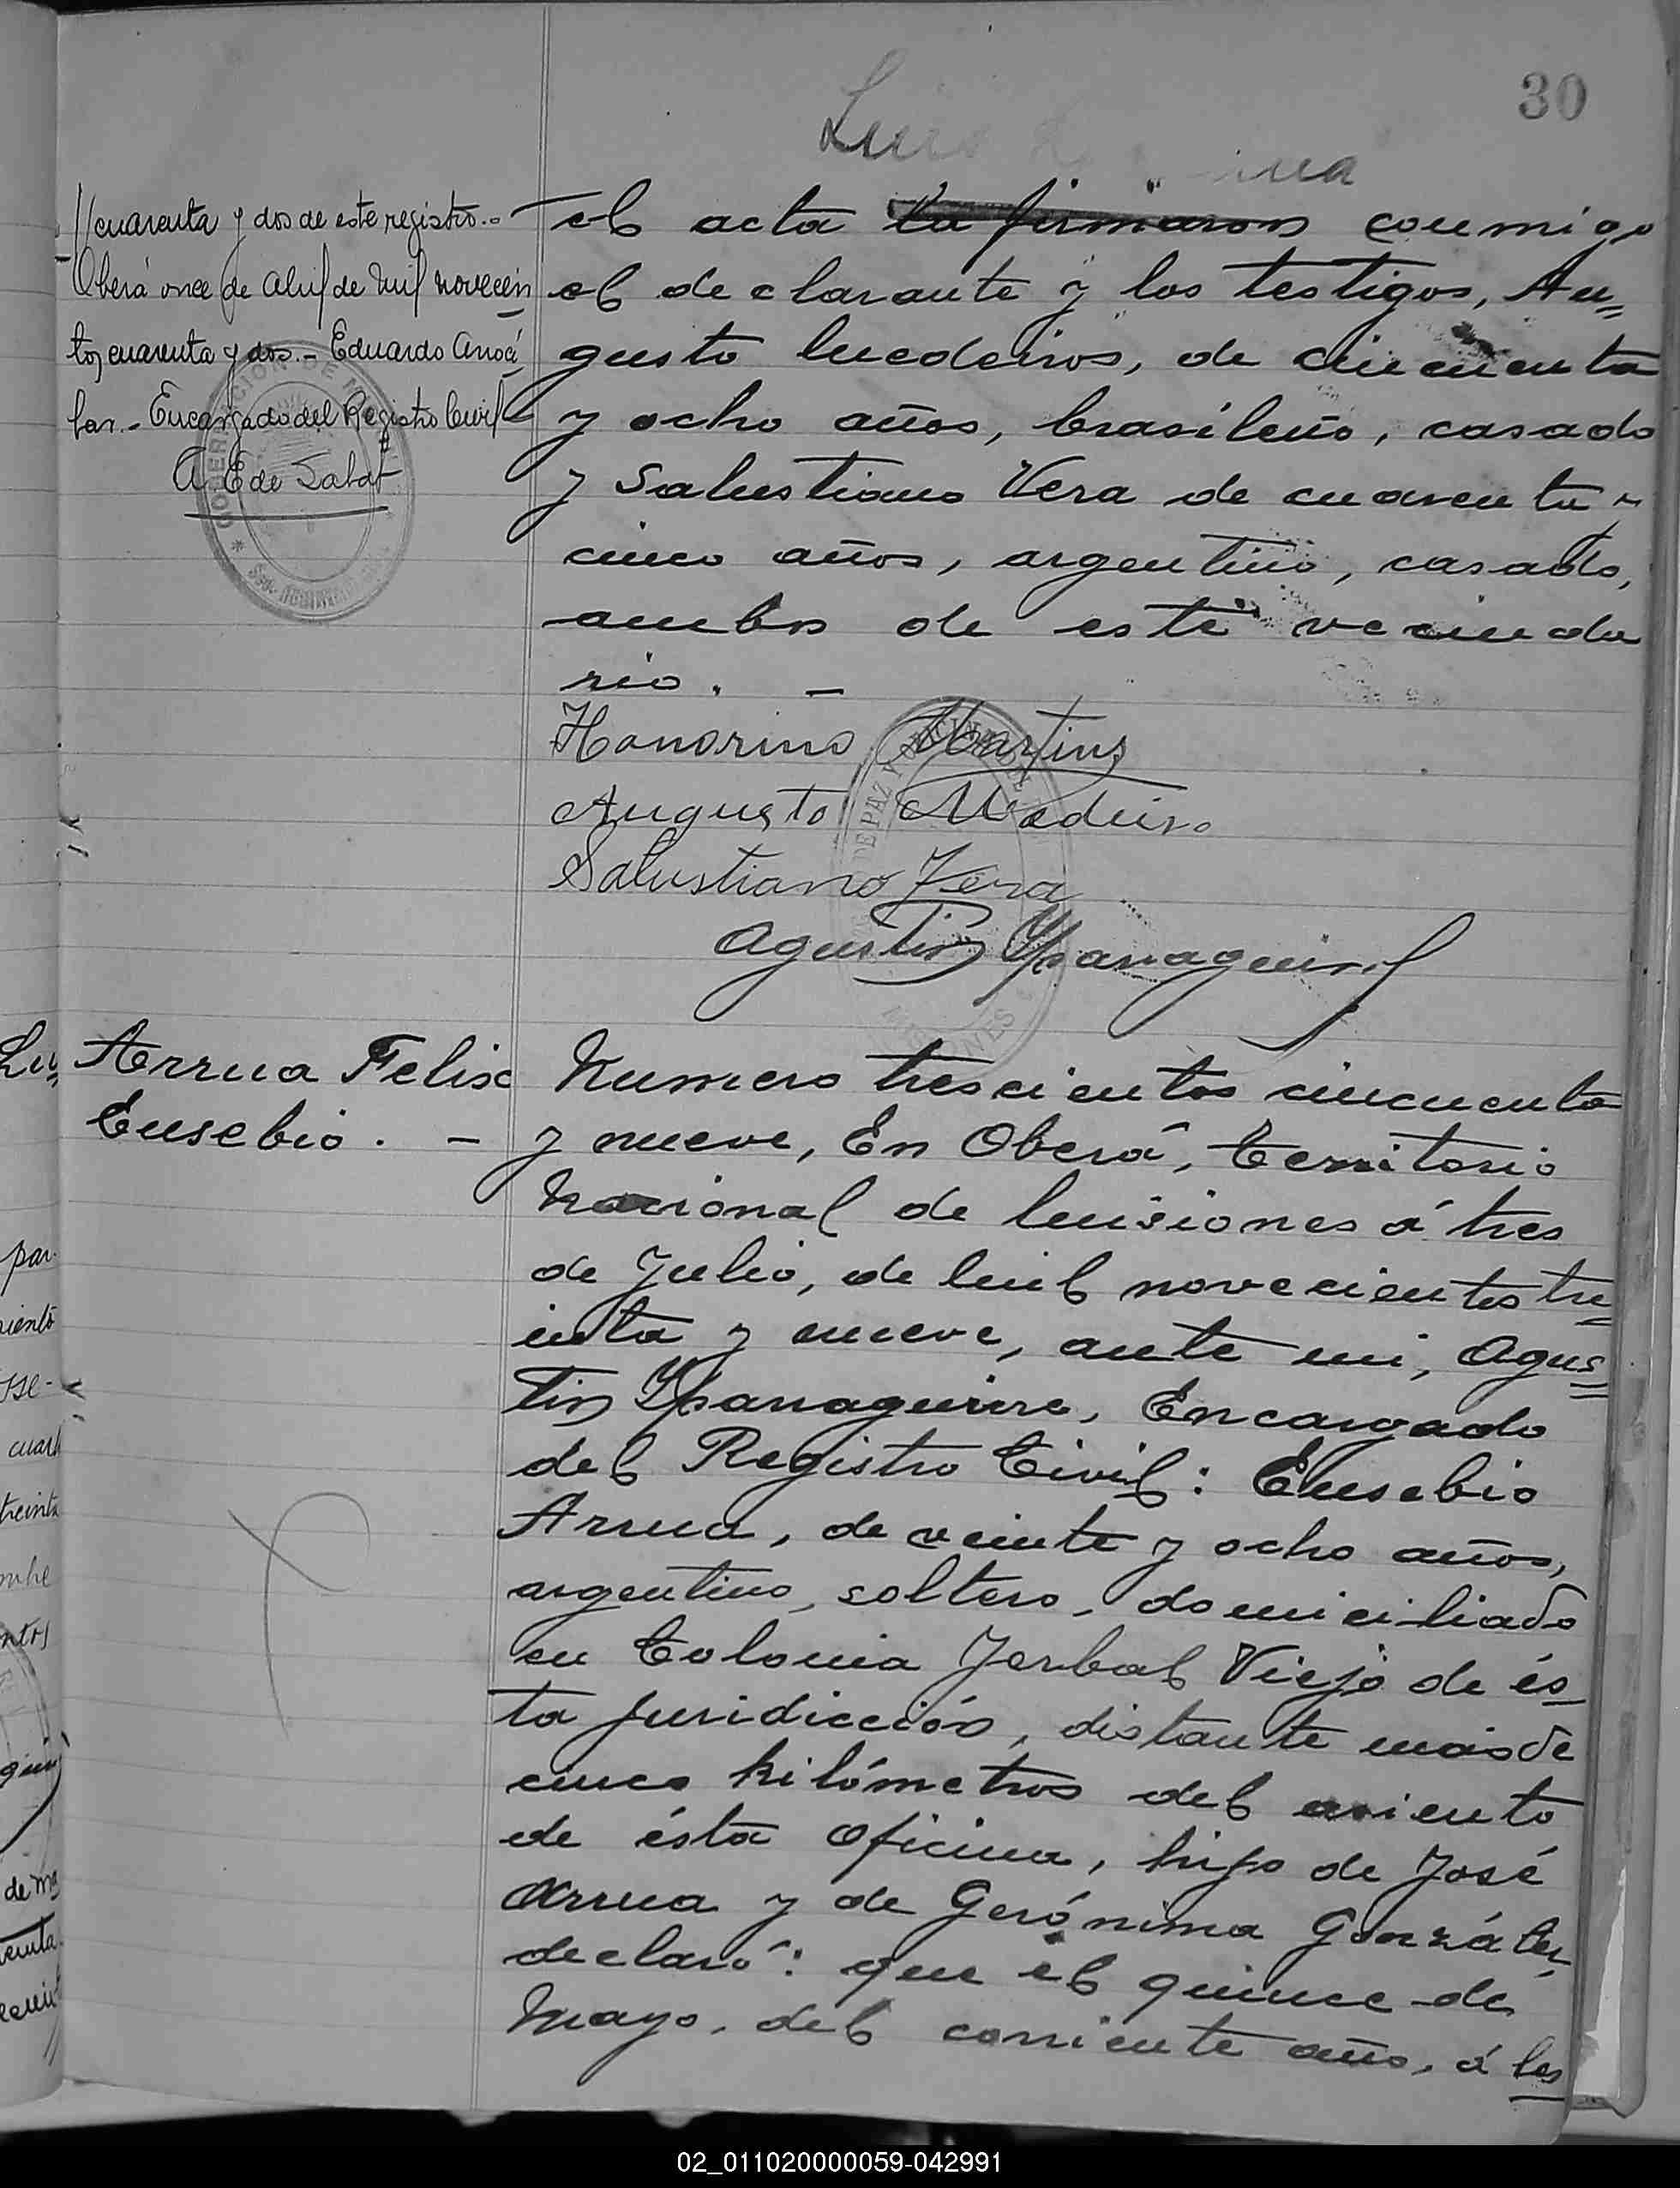 30
Luis
//cuarenta y dos de este registro.-
Oberá once de Abril de mil novecien
tos cuarenta y dos.- Eduardo
Encargado del Registro Civil
el acta la firmaron conmigo
el declarante y los testigos, Au=
gusto Medeiros, de cincuenta
y ocho años, brasileño, casado
y Salustiano Vera de cuarenta y
cinco años, argentino, casado,
ambos de este vecinda
rio. -
Honorino Martins
Augusto Medeiro
Salustiano Vera
Agustin Yparraguirre
Arrua Felix
Eusebio. -
Numero trescientos cincuenta
y nueve, En Oberá, Territorio
Nacional de Misiones á tres
de Julio, de mil novecientos tre=
inta y nueve, ante mi, Agus=
tin Yparraguirre, Encargado
del Registro Civil: Eusebio
Arrua, de veinte y ocho años,
argentino, soltero, domiciliado
en Colonia Yerbal Viejo de és-
ta juridicción, distante más de
cinco kilómetros del asiento
de ésta Oficina, hijo de José
Arrua y de Gerónima González,
declaró: que el quince de
Mayo, del corriente año, á las
02_011020000059-042991